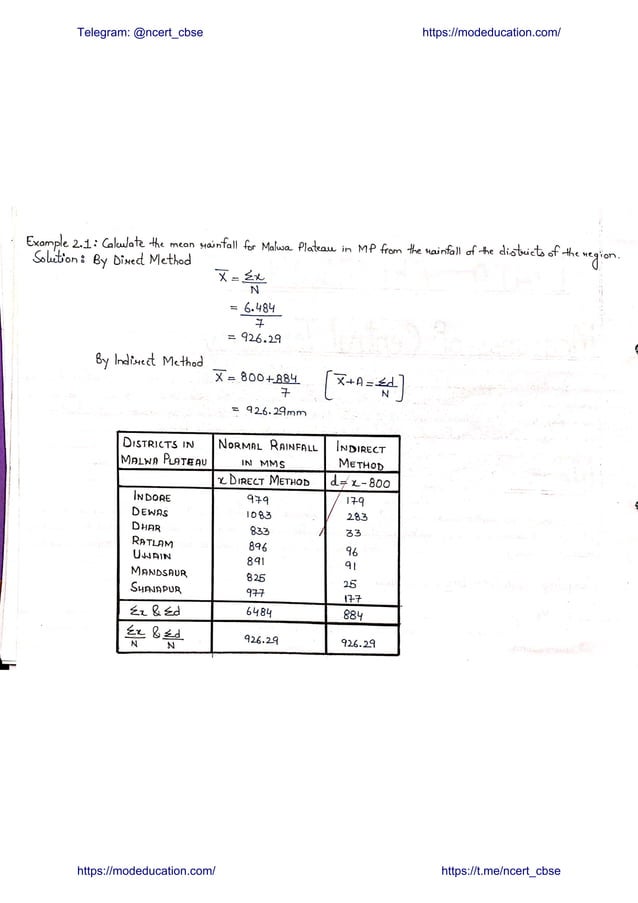 Telegram: @ncert_cbse https://modeducation.com/
Example 2.1: Calculate the mean rainfall for Malwa Plateau in MP from the rainfall of the districts of the region.
Solution: By Direct Method
X̄ = Σx
N
= 6.484
7
= 926.29
By Indirect Method
X̄ = 800+884 [X̄+A = Σd]
7 N
= 926.29mm
DISTRICTS IN NORMAL RAINFALL INDIRECT
MALWA PLATEAU IN MMS METHOD
x DIRECT METHOD d= x-800
INDORE 979 179
DEWAS 1083 283
DHAR 833 33
RATLAM 896 96
UJJAIN 891 91
MANDSAUR 825 25
SHAJAPUR 977 177
Σx & Σd 6484 884
Σx & Σd 926.29 926.29
N N
https://modeducation.com/ https://t.me/ncert_cbse